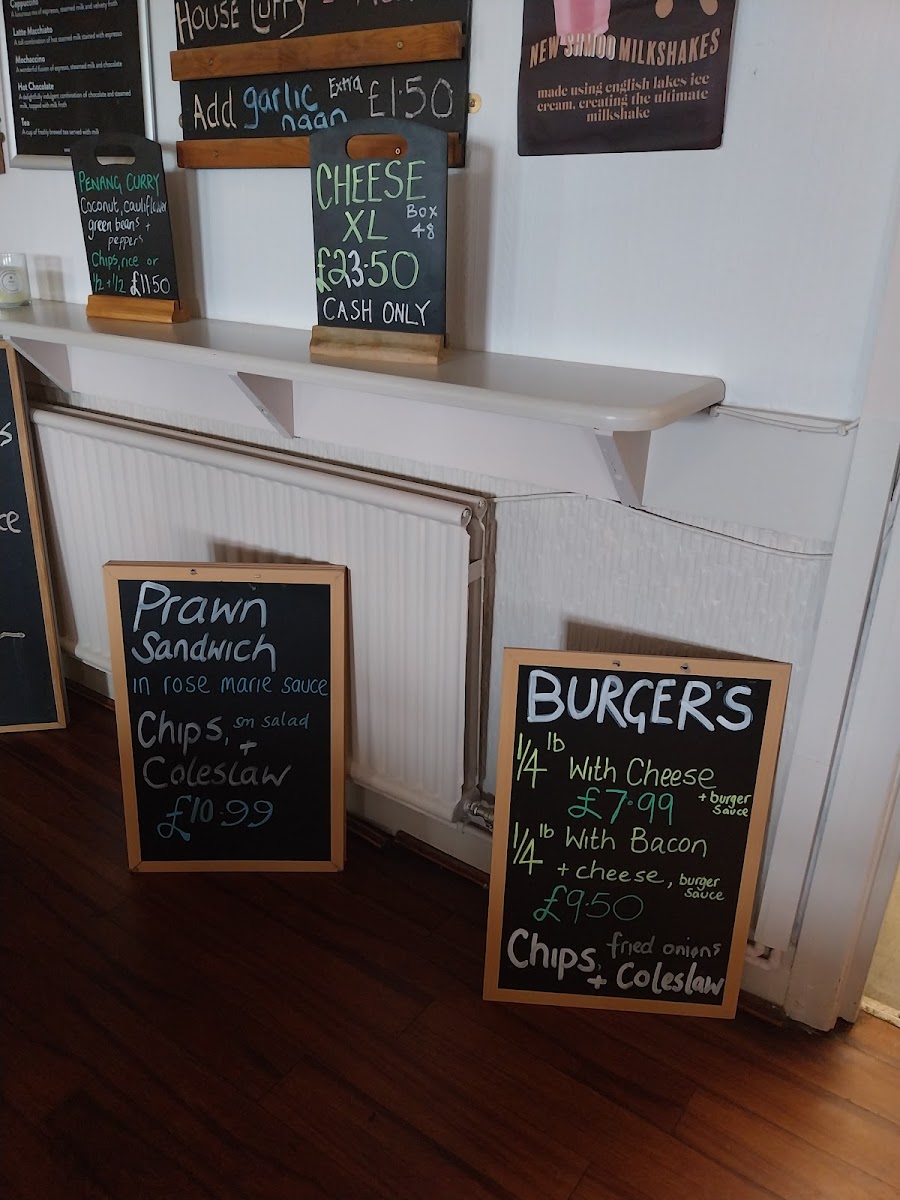 Cappuccino
A luxurious mix of espresso, steamed milk and velvety froth
Latte Macchiato
A tall combination of hot steamed milk stained with espresso
Mochaccino
A wonderful fusion of espresso, steamed milk and chocolate
Hot Chocolate
A delightfully indulgent combination of chocolate and steamed
milk, topped with milk froth
Tea
A cup of freshly brewed tea served with milk
House Curry
Add garlic naan Extra £1.50
NEW SHMOO MILKSHAKES
made using english lakes ice
cream, creating the ultimate
milkshake
PENANG CURRY
Coconut, cauliflower
green beans +
peppers
Chips, rice or
1/2 + 1/2 £11.50
CHEESE
XL Box 48
£23.50
CASH ONLY
Prawn
Sandwich
in rose marie sauce
Chips, sm salad
+
Coleslaw
£10.99
BURGER'S
1/4 lb With Cheese
£7.99 + burger sauce
1/4 lb With Bacon
+ cheese, burger sauce
£9.50
Chips, fried onions
+ Coleslaw